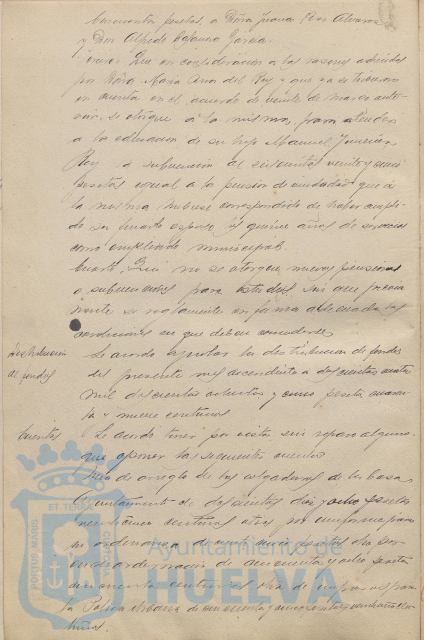 cincuenta pesetas, a Doña Juana Pons Alvarez
y Don Alfredo Cabanea García.
Tercero. Que en consideración a las razones aducidas
por Doña María Ana del Rey y que ya se tuvieron
en cuenta en el acuerdo de veinte de marzo ante-
rior, se otorgue a la misma, para atender
a la educación de su hijo Manuel
Rey la subvención de seiscientas veinte y cinco
pesetas igual a la pensión de viudedad que a
la misma hubiese correspondido de haber cumpli-
do su muerto esposo los quince años de servicios
como empleado municipal.
Cuarto. Que no se otorguen nuevas pensiones
o subvenciones para estudios sin que previa-
mente se reglamente en forma adecuada las
condiciones en que deban concederse.
Distribución
de fondos
Se acordó aprobar la distribución de fondos
del presente mes ascendente a doscientas cuatro
mil doscientas ochenta y cinco pesetas cuaren-
ta y nueve centimos
Cuentas
Se acordó tener por vistas sin reparo alguno
que oponer las siguientes cuentas
de arreglo de las colgaduras de las Casas
Ayuntamiento de doscientas diez y ocho pesetas
centimos otra por uniforme para
un ordenanza de pesetas otra por
de cincuenta y ocho pesetas
centimos otra de impresos para
la Policía Urbana de cincuenta y pesetas
timos.
Ayuntamiento de
HUELVA
PORTUS MARIS
ET TERRAE
CUSTODIA